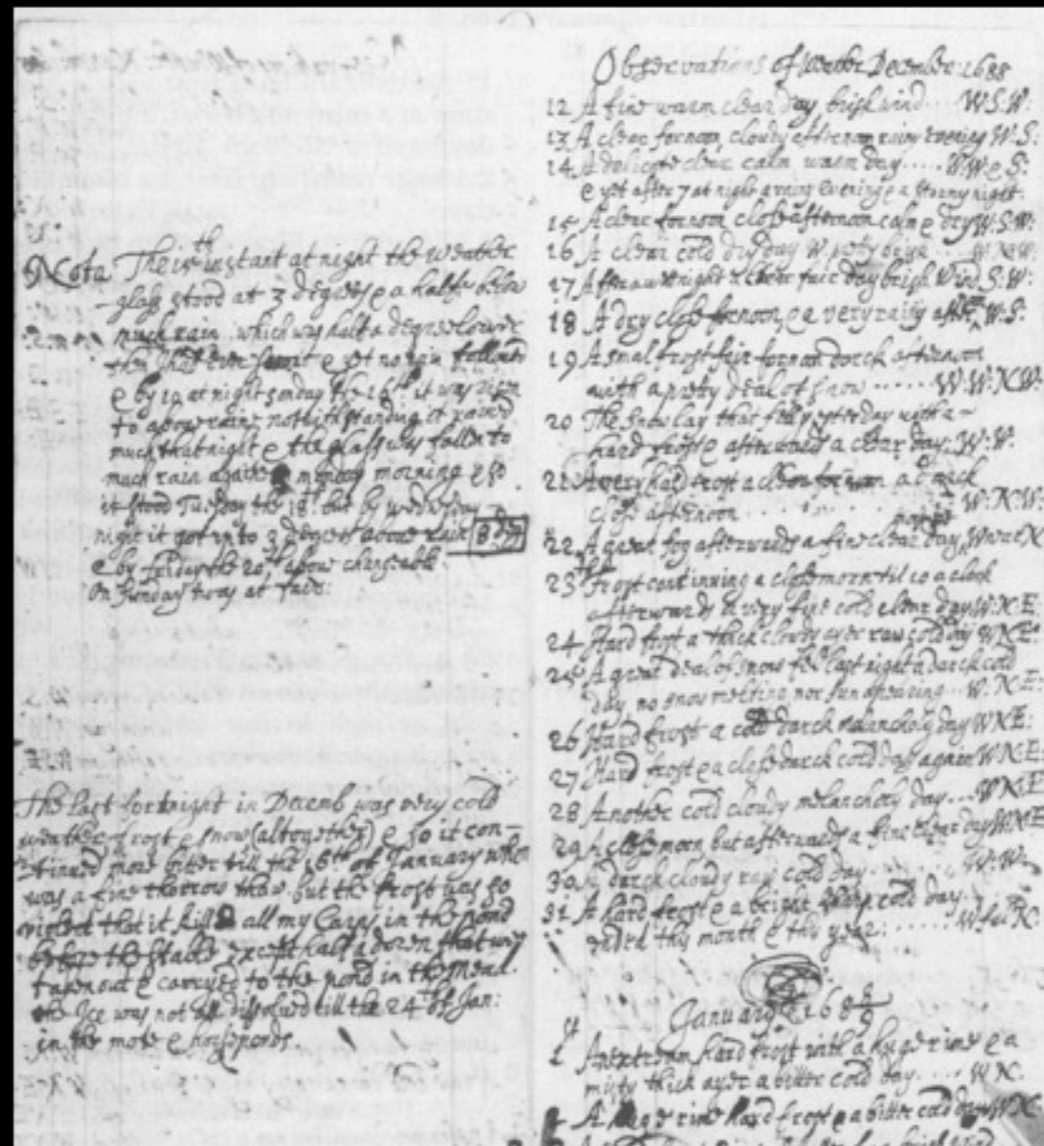 Nota: The 15th instant at night the Weather
glass stood at 3 degrees & a halfe below
much rain which was half a degree lower
then that ever saw it & yet no rain followed
& by 10 at night sonday the 16th it was risen
to above rain, notwithstanding it rained
much that night & the glass was fallen to
much rain again monday morning & so
it stood Tuesday the 18th but by wednsday
night it got up to 2 degrees above rain
& by friday the 20th above changeable
On Sunday twas at faire.
The last fortnight in Decemb was very cold
weather frost & snow (altogether) & so it con-
tinued most bitter till the 16th of January when
was a fine thorrow thaw but the frost was so
violent that it killd all my Carps in the pond
before the stable except half a dozen that wer
taken out & carryed to the pond in the mead.
the Ice was not all dissolved till the 24 of Jan:
in the mote & horsponds.
Observations of Weather December 1688
12 A fine warm clear day brisk wind .... W.S.W:
13 A clear fornoon, cloudy afternoon rainy evening W.S:
14 A delicate clear calm warm day ..... W.W.e S:
& yet after 7 at night a rainy Evening & a stormy night.
15 A clear fornoon close afternoon calm & dry W.S.W:
16 A clear cold dry day
17 After a wet night a clear fair day brisk Wind S:W:
18 A dry close fornoon, & a very rainy after W.S:
19 A smal frost fair fornoon darck afternoon
with a prety deal of snow ...... W:W:N:W:
20 The snow lay that fell yesterday with a
hard frost & afterwards a clear day: W:W:
21 A very hard frost a clear fornoon, a thick
close afternoon ........ W:N:W:
22 A great fog afterwards a fine clear day
23 frost continuing a close morn til 10 a clock
afterwards a very fine cold clear day W:N:E:
24 Hard frost a thick cloudy ayer raw cold day W N E:
25 A great deal of snow fell last night a darck cold
day, no snow melting nor sun apearing ... W:N:E:
26 Hard frost a cold darck melancholy day W N E:
27 Hard frost & a close darck cold day again W N:E:
28 Another cold cloudy melancholy day ... W N:E
29 A close morn but afterwards a fine clear day W N E
30 A darck cloudy raw cold day ...... W:W:
31 A hard frost & a bright sharp cold day
ended this month & this year: ......
January 168 8/9
1 An extream hard frost with a huge rime & a
misty thick ayer a bitter cold day .... W N:
2 A huge rime hard frost & a bitter cold day W N